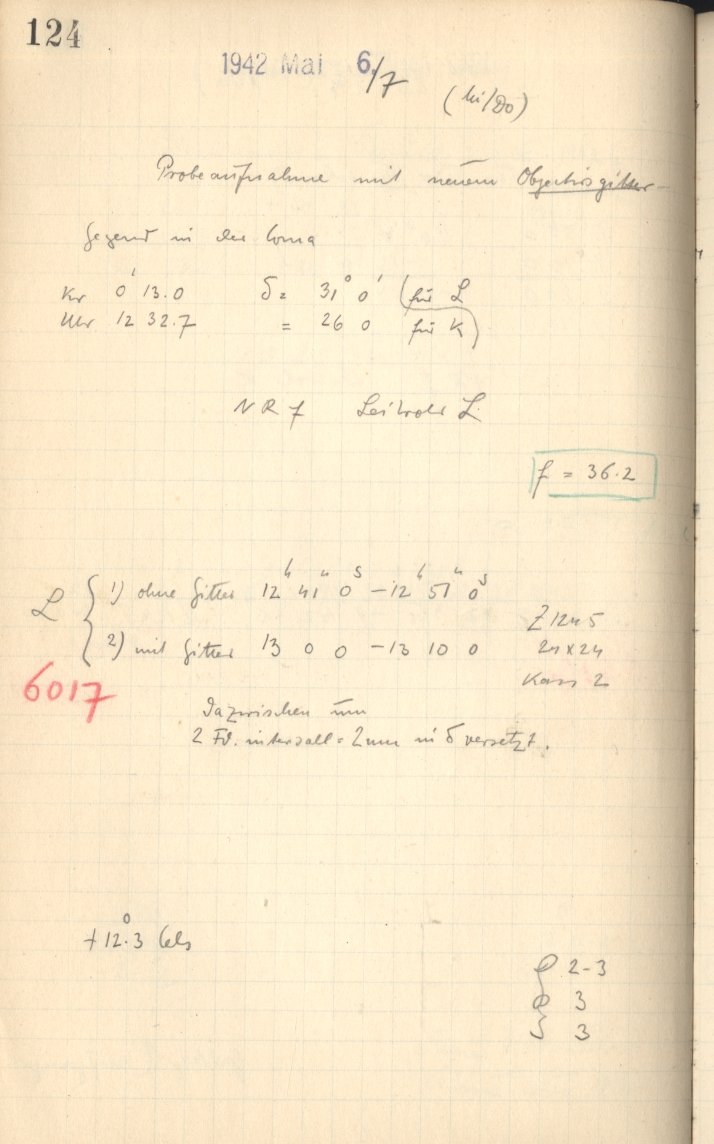 124
1942 Mai 6./7
(Mi/Do)
Probeaufnahme mit neuem Objectivgitter
Gegend in der Coma
Kr 0' 13.0 δ = 31° 0' (für L
Uhr 12 32.7 = 26 0 für K)
NR 7 Leitrohr L
f = 36.2
L { 1) ohne Gitter 12h 41m 0s – 12h 51m 0s
2) mit Gitter 13 0 0 – 13 10 0
Z 1245
24 x 24
Kass 2
6017
Dazwischen um
2 Fd. intervall = 2mm in δ versetzt.
+12°.3 Cels
2-3
3
3